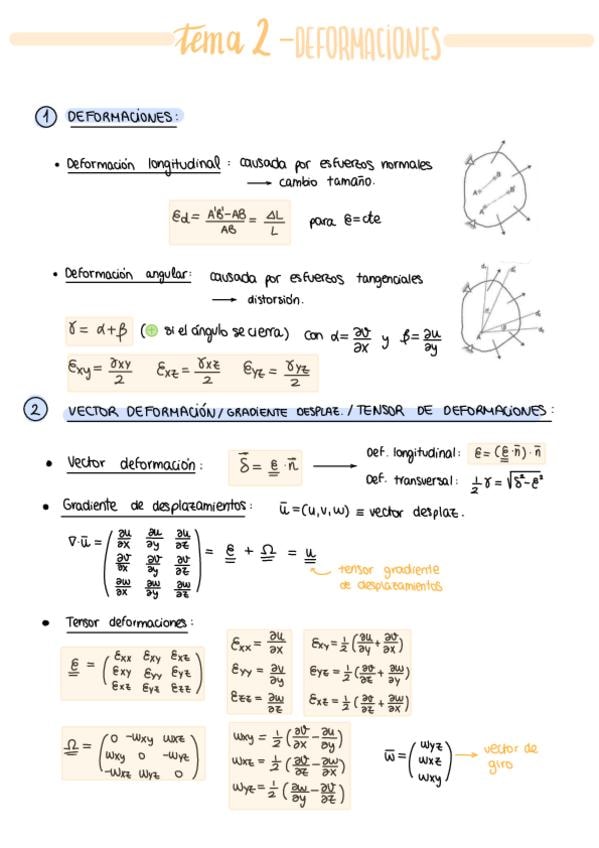 tema 2 - DEFORMACIONES
1 DEFORMACIONES:
• Deformación longitudinal: causada por esfuerzos normales
→ cambio tamaño.
εd = A'B'-AB / AB = ΔL / L para ε=cte
• Deformación angular: causada por esfuerzos tangenciales
→ distorsión.
γ = α+β (⊕ si el ángulo se cierra) con α = ∂v/∂x y β = ∂u/∂y
εxy = γxy/2 εxz = γxz/2 εyz = γyz/2
2 VECTOR DEFORMACIÓN/GRADIENTE DESPLAZ./TENSOR DE DEFORMACIONES:
• Vector deformación: δ = ε · n → Def. longitudinal: ε = (ε · n) · n
Def. transversal: ½ γ = √(δ²-ε²)
• Gradiente de desplazamientos: ū = (u,v,w) ≡ vector desplaz.
∇·ū = ( ∂u/∂x ∂u/∂y ∂u/∂z
∂v/∂x ∂v/∂y ∂v/∂z
∂w/∂x ∂w/∂y ∂w/∂z ) = ε + Ω = u
tensor gradiente
de desplazamientos
• Tensor deformaciones:
ε = ( εxx εxy εxz
εxy εyy εyz
εxz εyz εzz )
εxx = ∂u/∂x εxy = ½ (∂u/∂y + ∂v/∂x)
εyy = ∂v/∂y εyz = ½ (∂v/∂z + ∂w/∂y)
εzz = ∂w/∂z εxz = ½ (∂u/∂z + ∂w/∂x)
Ω = ( 0 -wxy wxz
wxy 0 -wyz
-wxz wyz 0 )
wxy = ½ (∂v/∂x - ∂u/∂y)
wxz = ½ (∂u/∂z - ∂w/∂x)
wyz = ½ (∂w/∂y - ∂v/∂z)
w = ( wyz
wxz
wxy ) → vector de
giro